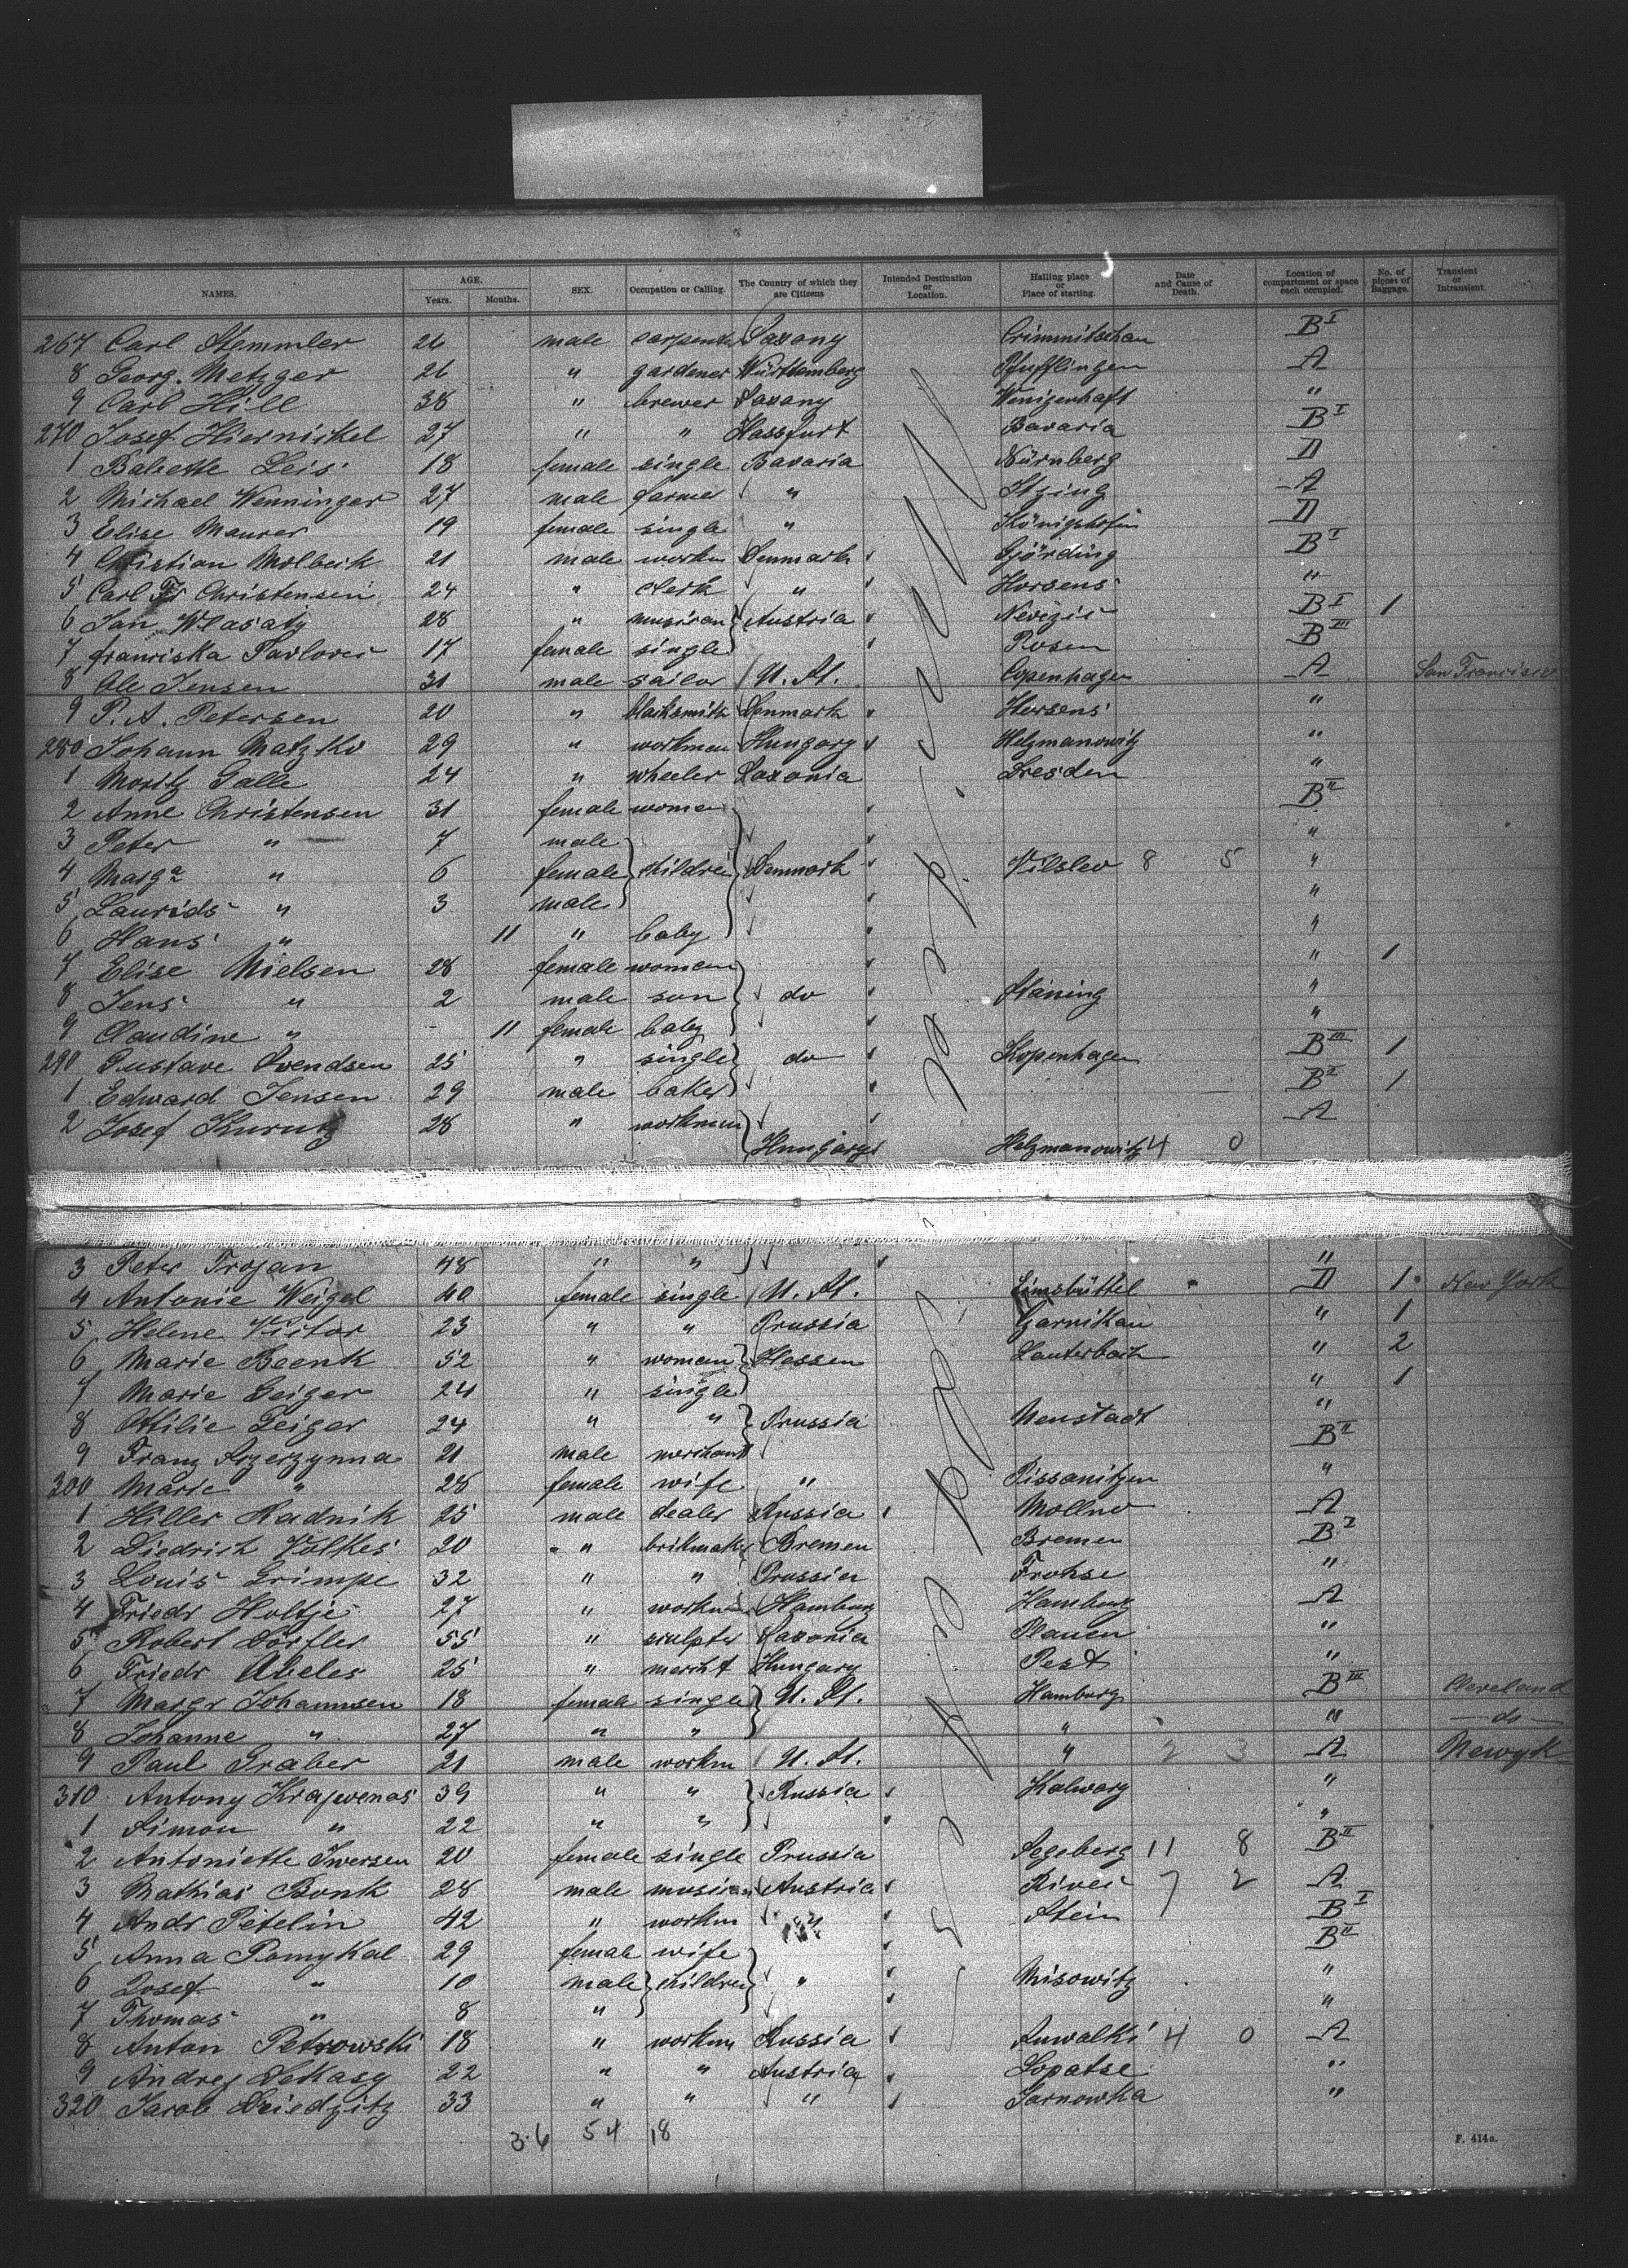 NAMES. AGE. Years. Months. SEX. Occupation or Calling. The Country of which they are Citizens Intended Destination or Location. Hailing place or Place of starting. Date and Cause of Death. Location of compartment or space each occupied. No. of pieces of Baggage. Transient or Intransient.
267 Carl Stemmler 26 male carpent Saxony Crimmitschau B I
8 Georg. Metzger 26 " gardener Württemberg Pfufflingen A
9 Carl Hill 38 " brewer Saxony Wenigenhaft "
270 Josef Hiernickel 27 " " Hassfurt Bavaria B I
1 Babette Leis 18 female single Bavaria Nürnberg D
2 Michael Wenninger 27 male farmer " Itzing A
3 Elise Maurer 19 female single " Königshofen D
4 Christian Molbeck 21 male workm Denmark Gjörding B I
5 Carl Fr Christensen 24 " clerk " Horsens "
6 Jan Wlasaty 28 " musican Austria B I 1
7 Franciska Pavlovec 17 female single Rosen B III
8 Ole Jensen 31 male sailor U. St. Copenhagen A San Francisco
9 P. A. Petersen 20 " blacksmith Denmark Horsens "
280 Johann Matzko 29 " workman Hungary Helzmanowitz "
1 Moritz Galle 24 " wheeler Saxonia Dresden "
2 Anne Christensen 31 female woman B II
3 Peter " 7 male "
4 Marga " 6 female children Denmark Vilslev 8 5 "
5 Laurids " 3 male "
6 Hans " 11 " baby "
7 Elise Nielsen 28 female woman " 1
8 Jens " 2 male son do Staning "
9 Claudine " 11 female baby "
290 Gustave Svendsen 25 " single do Kopenhagen B III 1
1 Edward Jensen 29 male baker B I 1
2 Josef Kurutz 28 " workman A
Hungary Helzmanowitz 4 0
3 Peter Trojan 48 " " "
4 Antonie Weigel 40 female single U. St. Eimsbüttel D 1 New York
5 Helene Victor 23 " " Prussia Czarnikau " 1
6 Marie Beenk 52 " woman Hessen Lauterbach " 2
7 Marie Geiger 24 " single " 1
8 Ottilie Geiger 24 " " Prussia Neustadt "
9 Franz Skzerzynna 21 male merchant B II
300 Marie " 28 female wife " Pissanitzen "
1 Hiller Radnik 25 male dealer Russia Mollno A
2 Diedrich Völkes 20 " brikmaker Bremen Bremen B I
3 Louis Grimpe 32 " " Prussia Frohse "
4 Friedr Holtje 27 " workm Hamburg Hamburg A
5 Robert Dörfler 55 " sculpter Saxonia Plauen "
6 Friedr Abeles 25 " mercht Hungary Pest "
7 Margr Johannsen 18 female single U. St. Hamburg B III Cleveland
8 Johanne " 27 " " " " do
9 Paul Graber 21 male workm U. St. " 2 3 A Newyk
310 Antony Krajwenas 39 " " Russia Kalwary "
1 Simon " 22 " " "
2 Antoniette Iwersen 20 female single Prussia Segeberg 11 8 B II
3 Mathias Bonk 28 male musican Austria 7 2 A
4 Andr Petelin 42 " workm " Stein B I
5 Anna Pomykal 29 female wife B II
6 Josef " 10 male children " Misowitz "
7 Thomas " 8 " "
8 Anton Petrowski 18 " workm Russia Suwalki 4 0 A
9 Andrej Dekasy 22 " " Austria Lopatse "
320 Jacob Dziedzitz 33 " " " Sarnowka "
36 54 18
F. 414a.